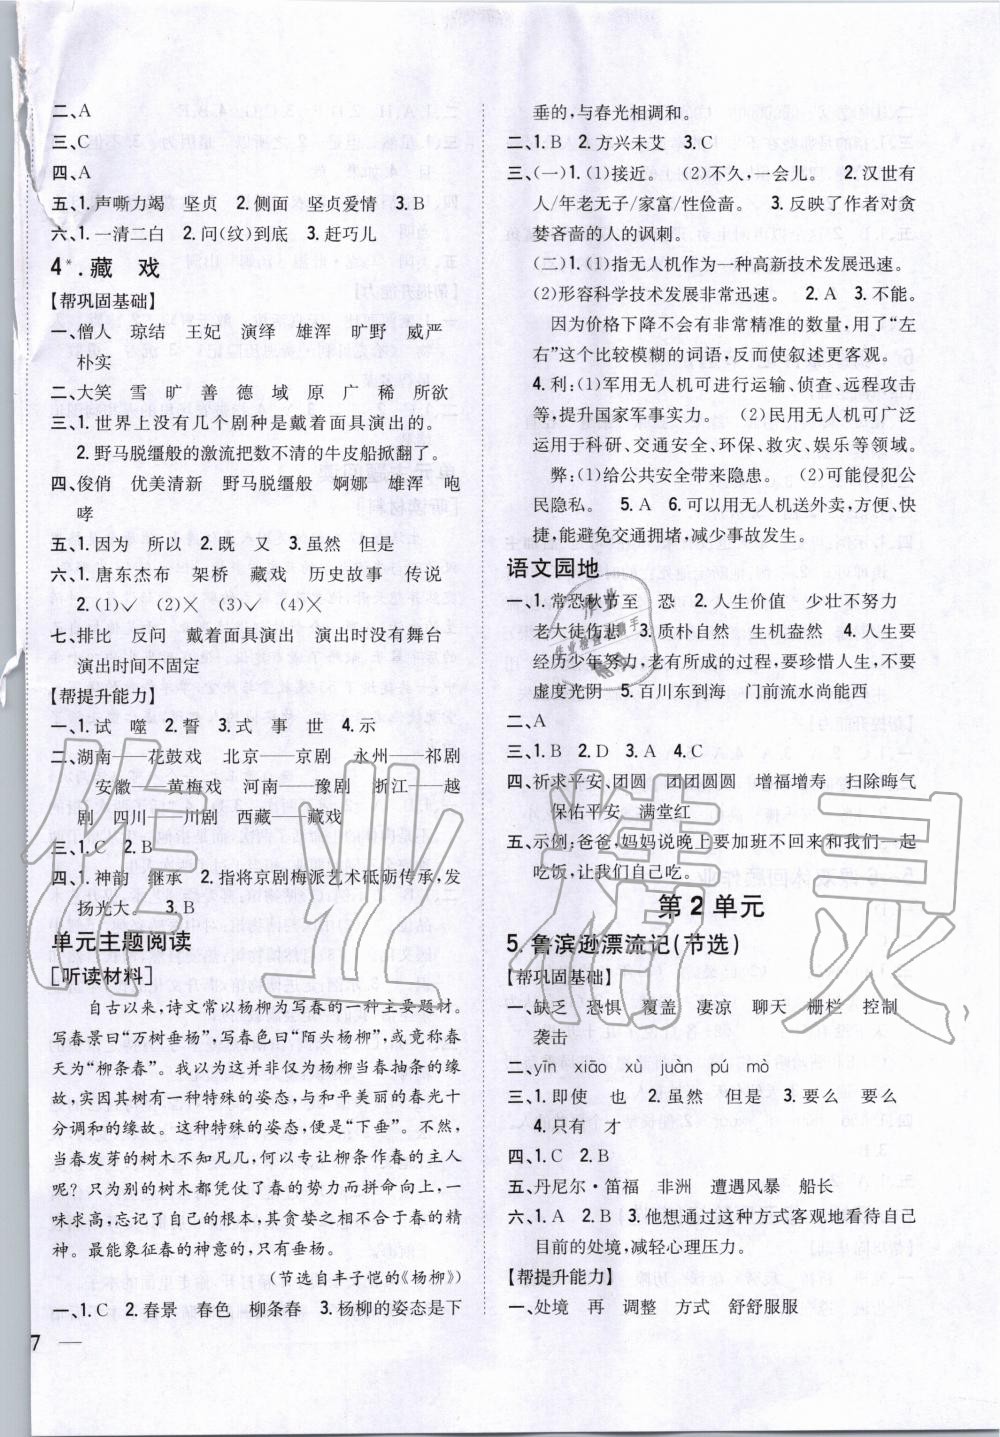 二、A
三、C
四、A
五、1.声嘶力竭 坚贞 2.侧面 坚贞爱情 3.B
六、1.一清二白 2.问(纹)到底 3.赶巧儿
4*.藏 戏
【帮巩固基础】
一、僧人 琼结 王妃 演绎 雄浑 旷野 威严
朴实
二、大笑 雪 旷 善 德 域 原 广 稀 所欲
三、1.世界上没有几个剧种是戴着面具演出的。
2.野马脱缰般的激流把数不清的牛皮船掀翻了。
四、俊俏 优美清新 野马脱缰般 婀娜 雄浑 咆
哮
五、1.因为 所以 2.既 又 3.虽然 但是
六、1.唐东杰布 架桥 藏戏 历史故事 传说
2.(1)✓ (2)× (3)✓ (4)×
七、排比 反问 戴着面具演出 演出时没有舞台
演出时间不固定
【帮提升能力】
一、1.试 噬 2.誓 3.式 事 世 4.示
二、湖南——花鼓戏 北京——京剧 永州——祁剧
安徽——黄梅戏 河南——豫剧 浙江——越
剧 四川——川剧 西藏——藏戏
三、1.C 2.B
四、1.神韵 继承 2.指将京剧梅派艺术砥砺传承,发
扬光大。 3.B
单元主题阅读
[听读材料]
自古以来,诗文常以杨柳为写春的一种主要题材。
写春景曰“万树垂杨”,写春色曰“陌头杨柳”,或竟称春
天为“柳条春”。我以为这并非仅为杨柳当春抽条的缘
故,实因其树有一种特殊的姿态,与和平美丽的春光十
分调和的缘故。这种特殊的姿态,便是“下垂”。不然,
当春发芽的树木不知凡几,何以专让柳条作春的主人
呢？只为别的树木都凭仗了春的势力而拼命向上,一
味求高,忘记了自己的根本,其贪婪之相不合于春的精
神。最能象征春的神意的,只有垂杨。
(节选自丰子恺的《杨柳》)
一、1.C 2.春景 春色 柳条春 3.杨柳的姿态是下
7 —
垂的,与春光相调和。
二、1.B 2.方兴未艾 3.C
三、(一)1.(1)接近。 (2)不久,一会儿。 2.汉世有
人/年老无子/家富/性俭啬。 3.反映了作者对贪
婪吝啬的人的讽刺。
(二)1.(1)指无人机作为一种高新技术发展迅速。
(2)形容科学技术发展非常迅速。 2.A 3.不能。
因为价格下降不会有非常精准的数量,用了“左
右”这个比较模糊的词语,反而使叙述更客观。
4.利:(1)军用无人机可进行运输、侦查、远程攻击
等,提升国家军事实力。 (2)民用无人机可广泛
运用于科研、交通安全、环保、救灾、娱乐等领域。
弊:(1)给公共安全带来隐患。 (2)可能侵犯公
民隐私。 5.A 6.可以用无人机送外卖,方便、快
捷,能避免交通拥堵,减少事故发生。
语文园地
一、1.常恐秋节至 恐 2.人生价值 少壮不努力
老大徒伤悲 3.质朴自然 生机盎然 4.人生要
经历少年努力,老有所成的过程,要珍惜人生,不要
虚度光阴 5.百川东到海 门前流水尚能西
二、A
三、1.B 2.D 3.A 4.C
四、祈求平安、团圆 团团圆圆 增福增寿 扫除晦气
保佑平安 满堂红
五、示例:爸爸,妈妈说晚上要加班不回来和我们一起
吃饭,让我们自己吃.
第2单元
5.鲁滨逊漂流记(节选)
【帮巩固基础】
一、缺乏 恐惧 覆盖 凄凉 聊天 栅栏 控制
袭击
二、yīn xiāo xù juàn pú mò
三、1.即使 也 2.虽然 但是 3.要么 要么
4.只有 才
四、1.C 2.B
五、丹尼尔·笛福 非洲 遭遇风暴 船长
六、1.A 2.B 3.他想通过这种方式客观地看待自己
目前的处境,减轻心理压力。
【帮提升能力】
一、处境 再 调整 方式 舒舒服服
作业精灵